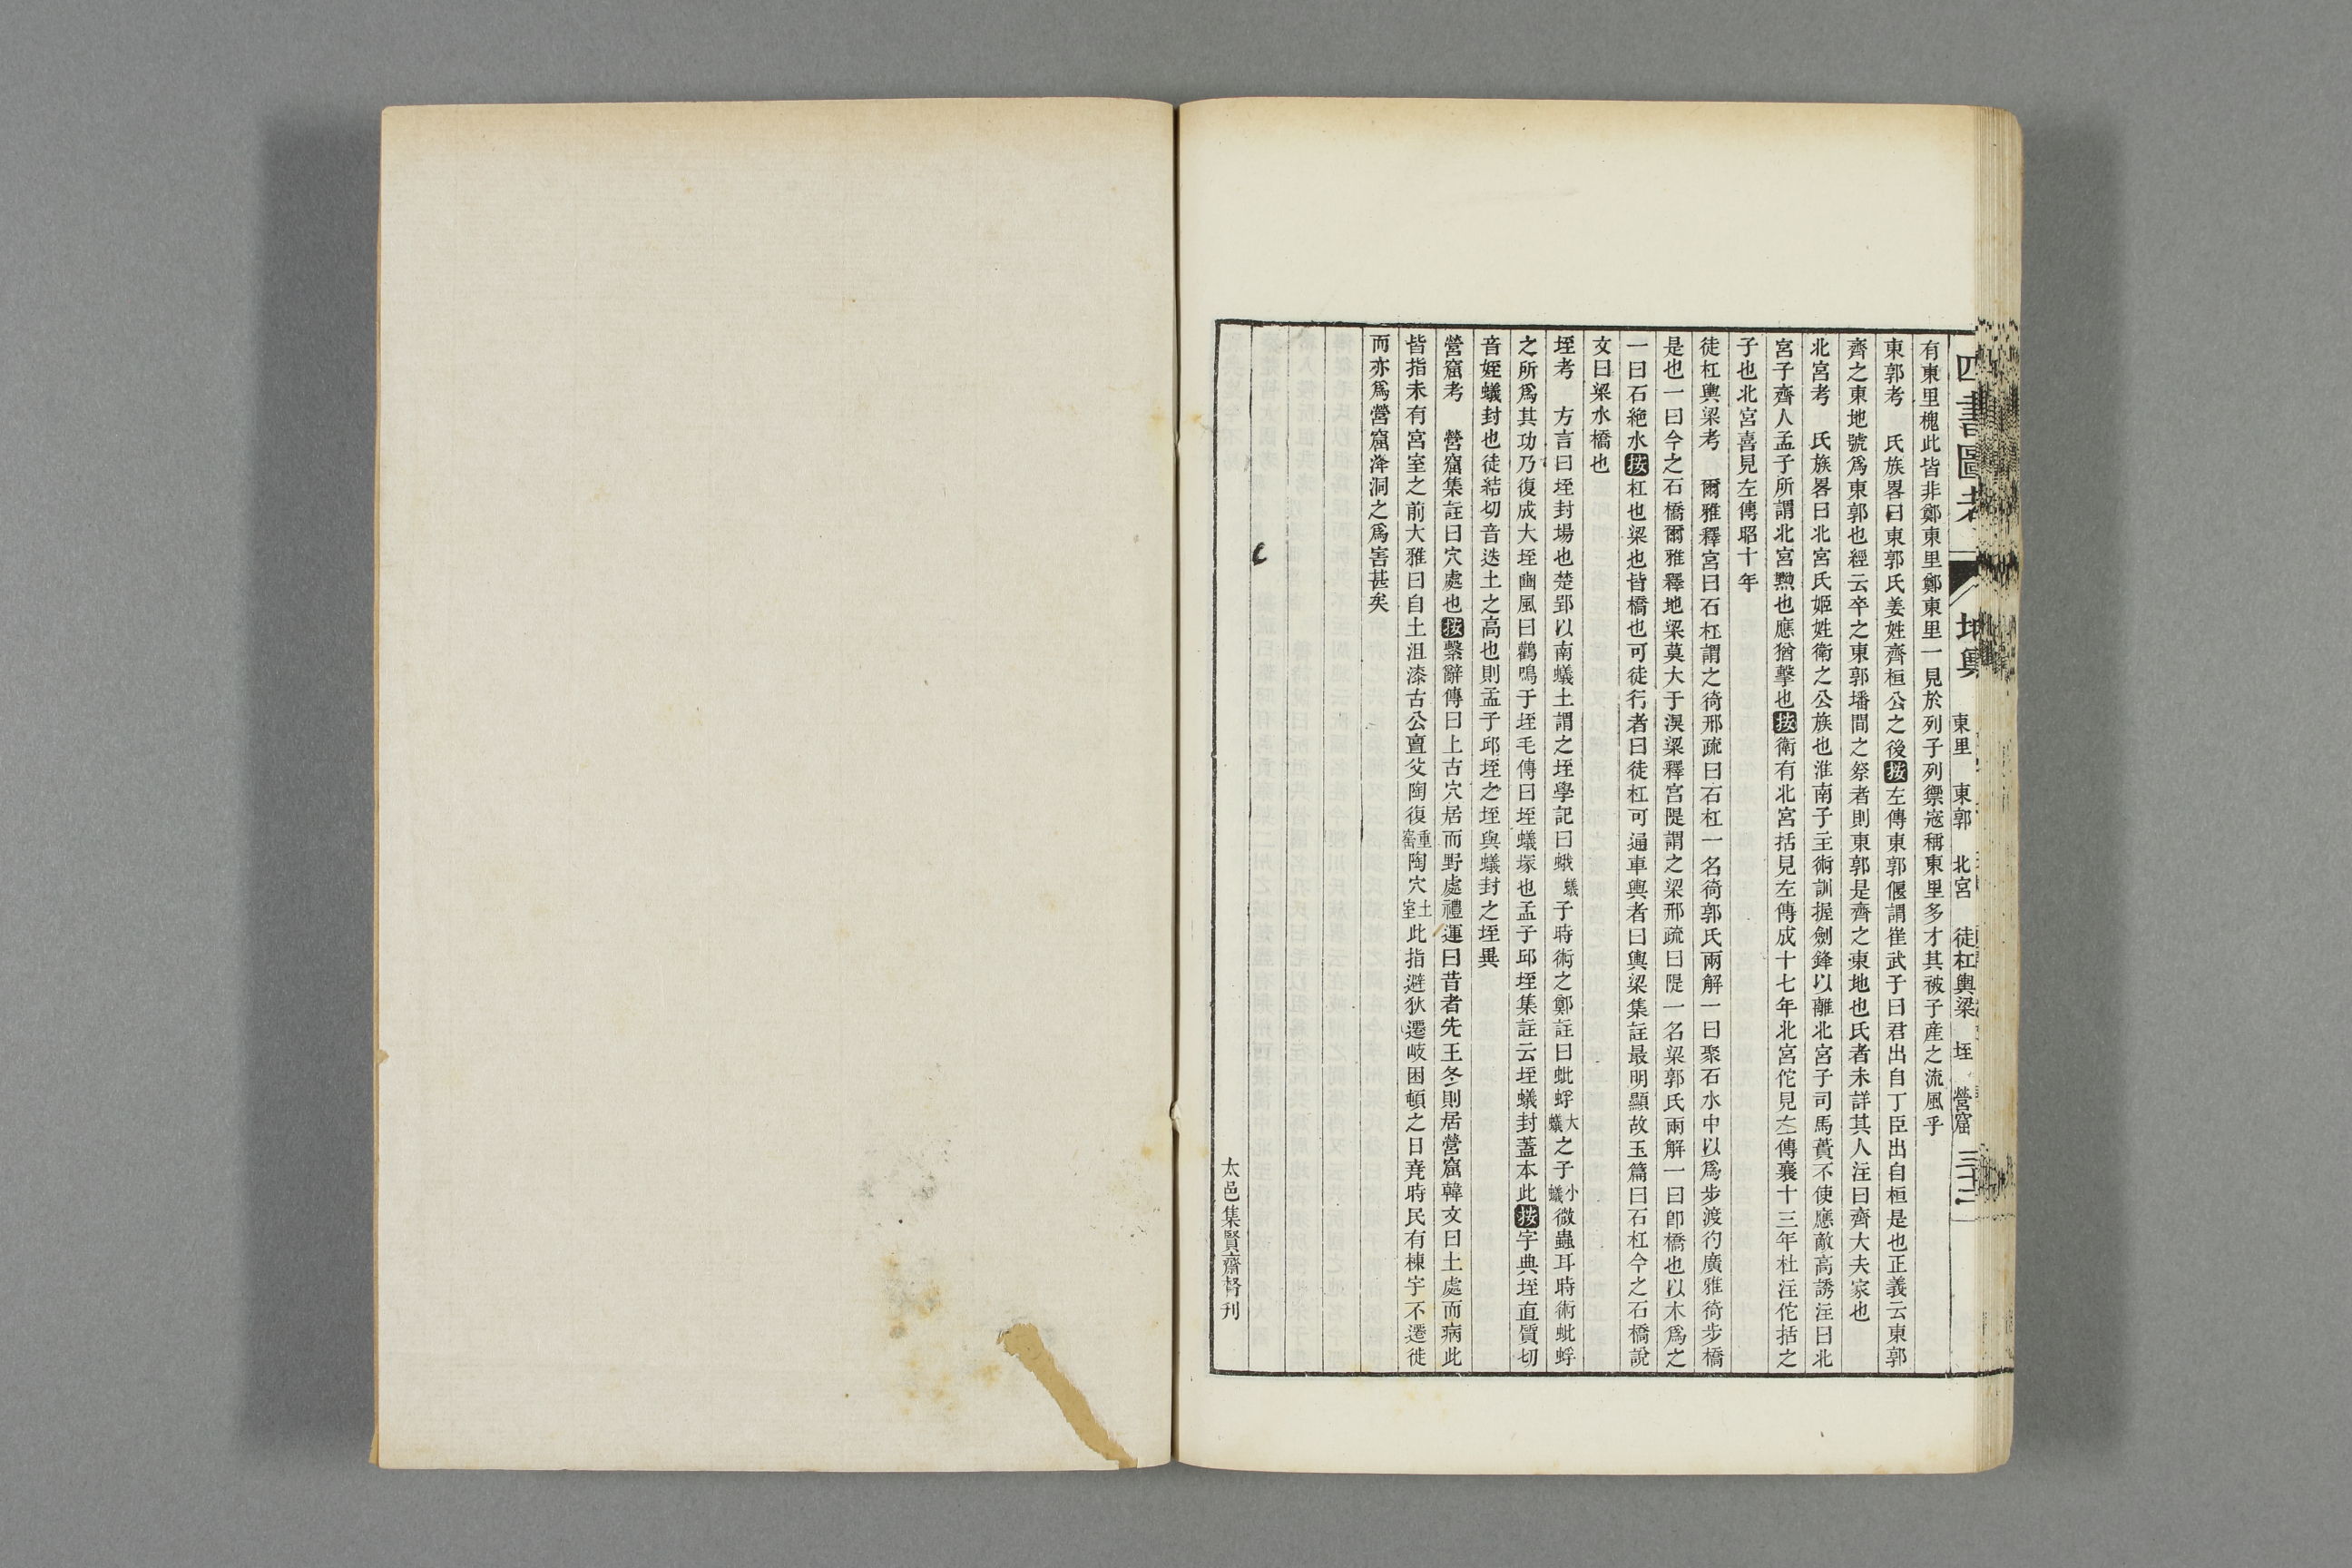 四書圖考 地輿 東里 東郭 北宮 徒杠輿梁 垤 營窟 三十二
有東里槐此皆非鄭東里鄭東里一見於列子列禦寇稱東里多才其被子產之流風乎
東郭考 氏族畧曰東郭氏姜姓齊桓公之後按左傳東郭偃謂崔武子曰君出自丁臣出自桓是也正義云東郭
齊之東地號爲東郭也經云卒之東郭墦間之祭者則東郭是齊之東地也氏者未詳其人注曰齊大夫家也
北宮考 氏族畧曰北宮氏姬姓衛之公族也淮南子主術訓握劍鋒以離北宮子司馬蕡不使應敵高誘注曰北
宮子齊人孟子所謂北宮黝也應猶擊也按衛有北宮括見左傳成十七年北宮佗見左傳襄十三年杜注佗括之
子也北宮喜見左傳昭十年
徒杠輿梁考 爾雅釋宮曰石杠謂之徛邢疏曰石杠一名徛郭氏兩解一曰聚石水中以爲步渡彴廣雅徛步橋
是也一曰今之石橋爾雅釋地梁莫大于湨梁釋宮隄謂之梁邢疏曰隄一名梁郭氏兩解一曰卽橋也以木爲之
一曰石絶水按杠也梁也皆橋也可徒行者曰徒杠可通車輿者曰輿梁集註最明顯故玉篇曰石杠今之石橋說
文曰梁水橋也
垤考 方言曰垤封場也楚郢以南蟻土謂之垤學記曰蛾蟻子時術之鄭註曰蚍蜉大蟻之子小蟻微蟲耳時術蚍蜉
之所爲其功乃復成大垤豳風曰鸛鳴于垤毛傳曰垤蟻塚也孟子邱垤集註云垤蟻封蓋本此按字典垤直質切
音姪蟻封也徒結切音迭土之高也則孟子邱垤之垤與蟻封之垤異
營窟考 營窟集註曰穴處也按繫辭傳曰上古穴居而野處禮運曰昔者先王冬則居營窟韓文曰土處而病此
皆指未有宮室之前大雅曰自土沮漆古公亶父陶復重窰陶穴土室此指避狄遷岐困頓之日堯時民有棟宇不遷徙
而亦爲營窟洚洞之爲害甚矣
太邑集賢齋督刊